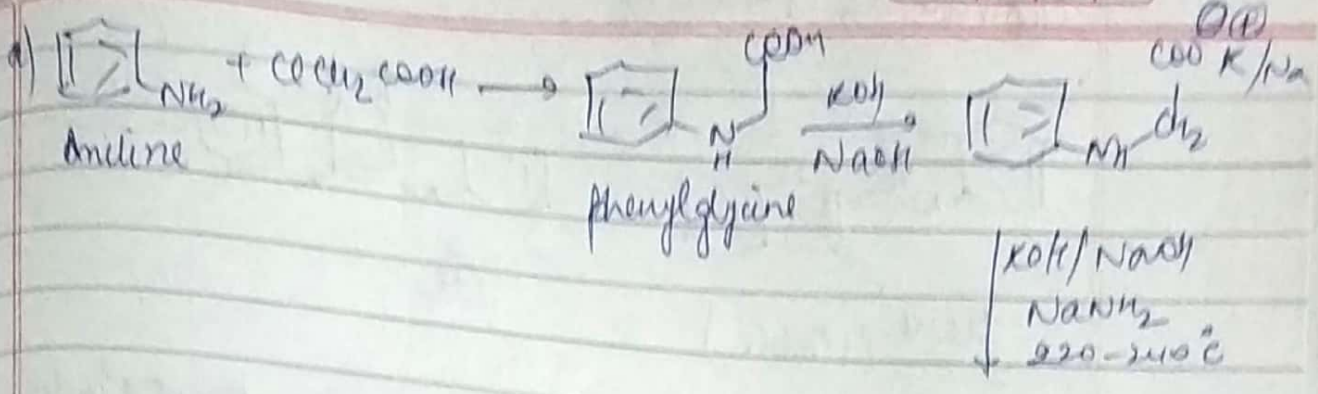 a) NH2 + COCH2COOH → COOH N H KOH NaOH → COO⊖ K⊕/Na CH2 NH
Aniline
Phenylglycine
KOH/NaOH
NaNH2
220-240°C